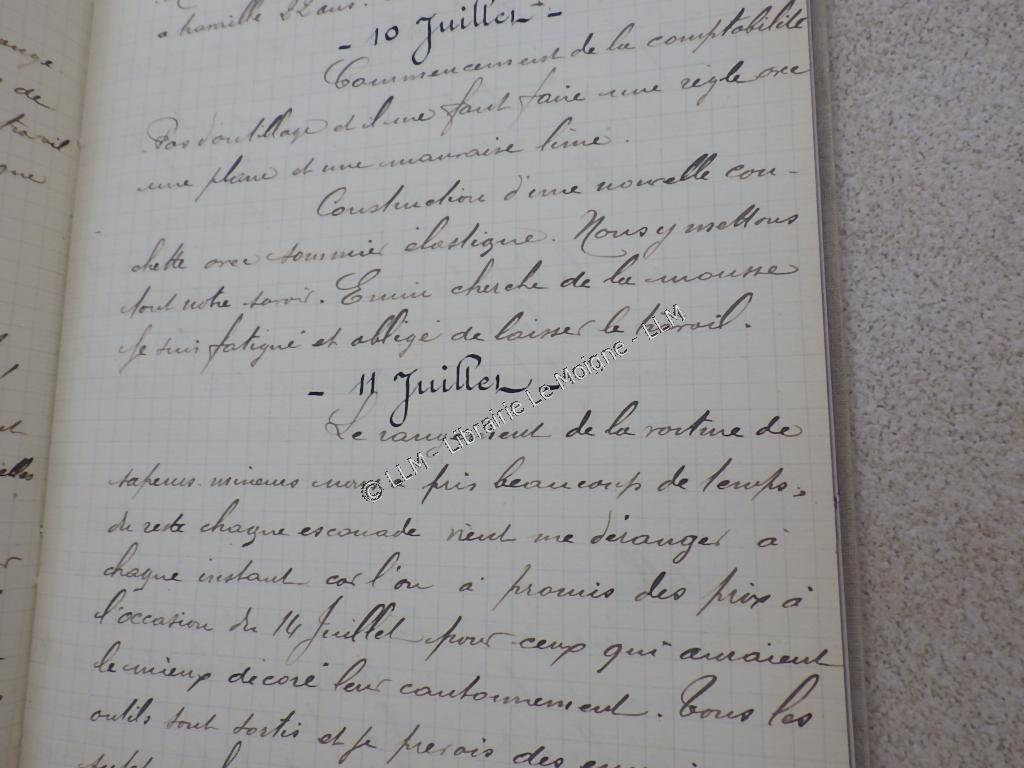 a travaillé 22 ans.
- 10 Juillet -
Commencement de la comptabilité
Pas d'outillage et il me faut faire une règle avec
une plane et une mauvaise lime.
Construction d'une nouvelle cou-
chette avec sommier élastique. Nous y mettons
tout notre savoir. Emin cherche de la mousse
Je suis fatigué et obligé de laisser le travail.
- 11 Juillet -
Le rangement de la voiture de
sapeurs-mineurs nous a pris beaucoup de temps,
du reste chaque escouade vient me déranger à
chaque instant car l'on a promis des prix à
l'occasion du 14 Juillet pour ceux qui auraient
le mieux décoré leur cantonnement. Tous les
outils sont sortis et je prévois des
© LLM - Librairie Le Moigne - LLM
de
travail
que